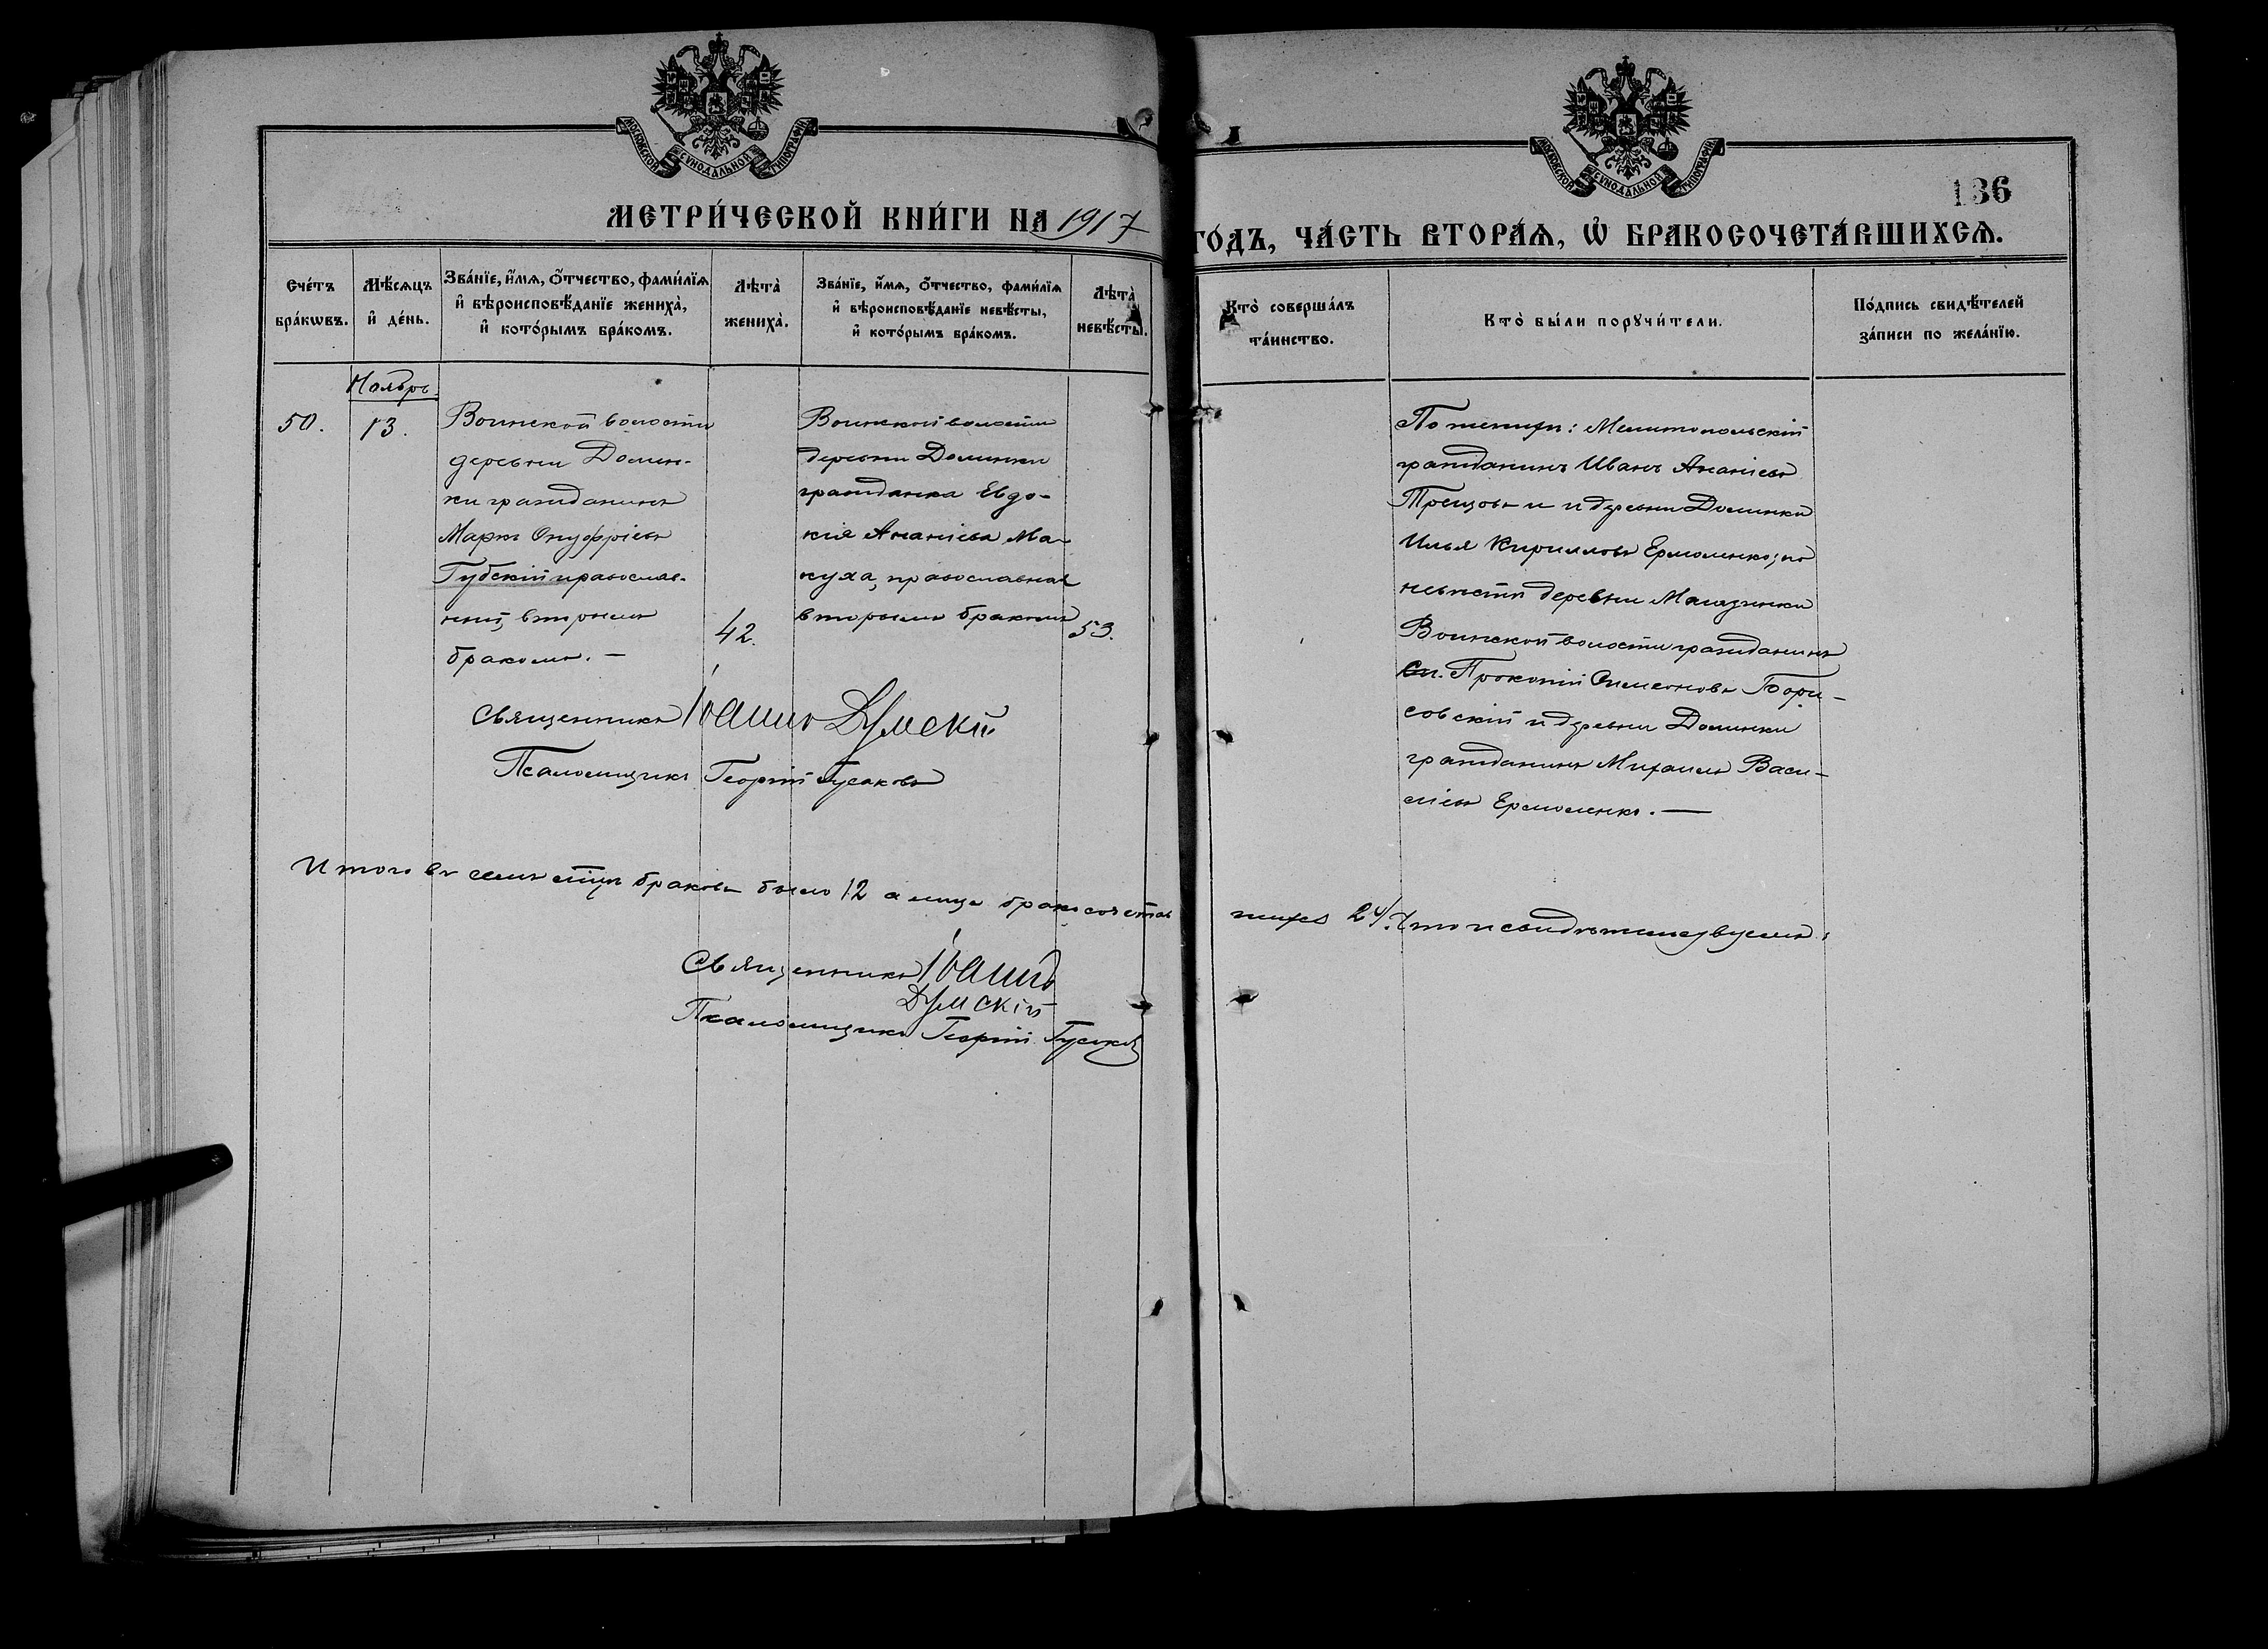 МОСКОВСКОЙ СѴНОДАЛЬНОЙ ТИПОГРАФІИ
МОСКОВСКОЙ СѴНОДАЛЬНОЙ ТИПОГРАФІИ
136
МЕТРИ́ЧЕСКОЙ КНИ́ГИ НА 1917
ГО́ДЪ, ЧА́СТЬ ВТОРА́Ѧ, Ѡ҆ БРАКОСОЧЕТА́ВШИХСѦ.
Сче́тъ
бра́кѡвъ.
Мѣ́сѧцъ
и҆ де́нь.
Зва́нїе, и҆́мѧ, ѻ҆́тчество, фами́лїѧ
и҆ вѣроисповѣ́данїе жениха̀,
и҆ кото́рымъ бра́комъ.
Лѣта̀
жениха̀.
Зва́нїе, и҆́мѧ, ѻ҆́тчество, фами́лїѧ
и҆ вѣроисповѣ́данїе невѣ́сты,
и҆ кото́рымъ бра́комъ.
Лѣта̀
невѣ́сты.
Кто̀ соверша́лъ
та́инство.
Кто̀ бы́ли порꙋчи́тели.
По́дпись свидѣ́телей
за́писи по жела́нїю.
Ноябрь
50.
13.
Воинской волости
деревни Домин-
ки гражданинъ
Маркъ Онуфріевъ
Губскій православ-
ный, вторымъ
бракомъ. —
42.
Воинской волости
деревни Доминки
гражданка Евдо-
кія Ананіева Ма-
куха, православная
вторымъ бракомъ
53.
По женихѣ: Мелитопольскій
гражданинъ Иванъ Ананіевъ
и деревни Доминки
Илья Кирилловъ Ермоленко; по
невѣстѣ деревни
Воинской волости гражданинъ
Прокопій Симеоновъ Бори-
совскій и деревни Доминки
гражданинъ Михаилъ Васи-
ліевъ Ермоленко. —
Священникъ Іоаннъ Думскій
Псаломщикъ Георгій Гусаковъ
Итого въ семъ м-цѣ браковъ было 12 а лицъ бракосочетав
шихся 24. Что и свидѣтельствуемъ:
Священникъ Іоаннъ
Думскій
Псаломщикъ Георгій Гусаковъ